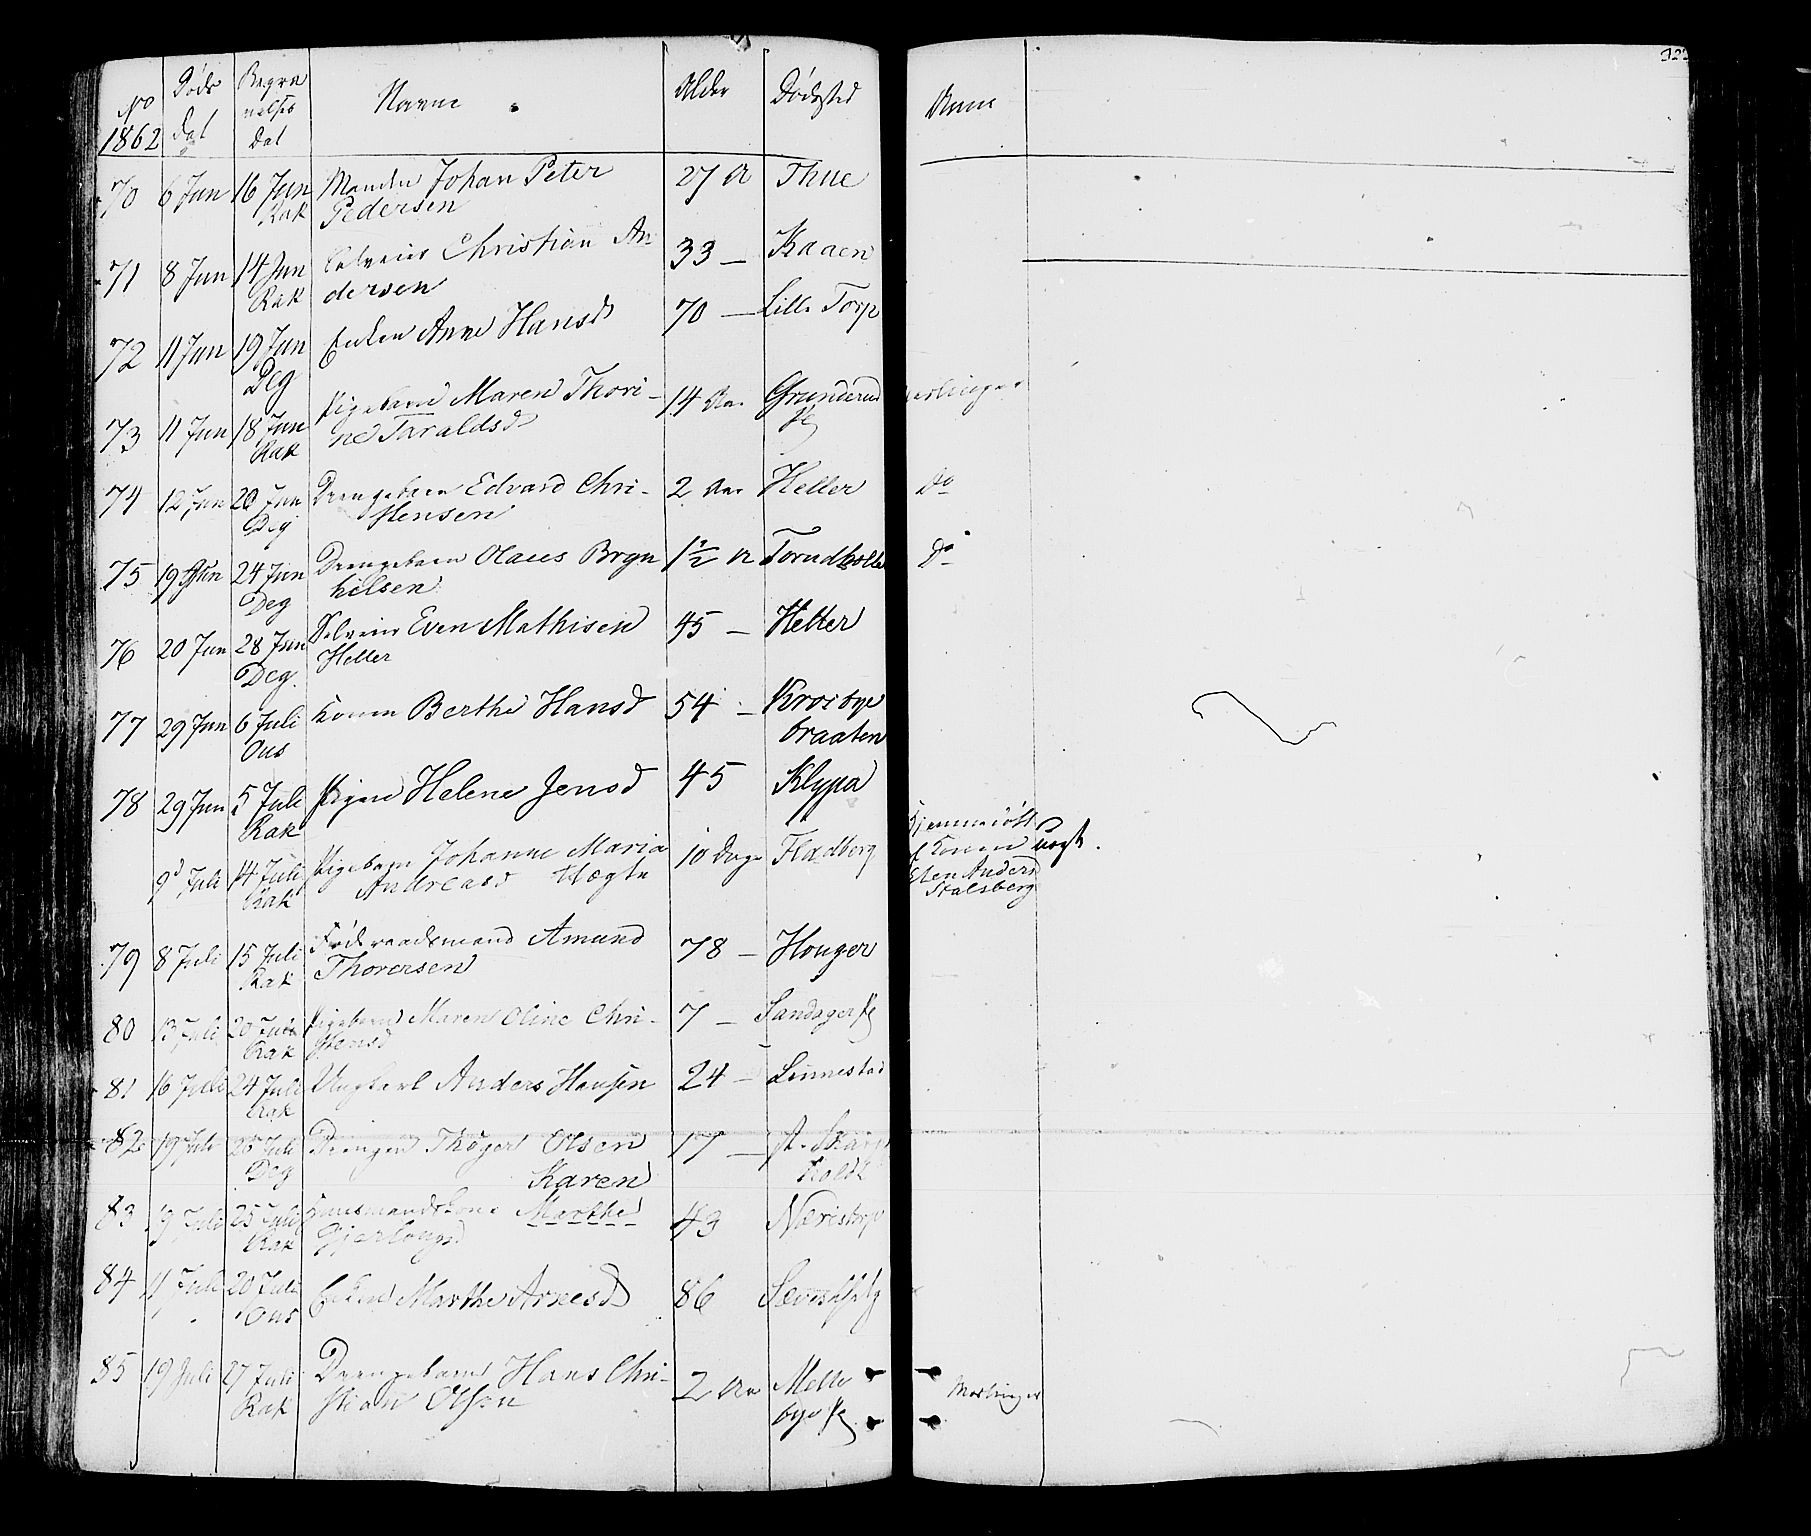 322
No 1862 Døds Dat Begravelses Dat Navne Alder Dødssted Anm
70 6 Jun 16 Jun Manden Johan Peter 27 A Thue
Rak Pedersen
71 8 Jun 14 Jun Selveier Christian An 33 – Kaaen
Rak dersen
72 11 Jun 19 Jun Enken Anne Hansd 70 – Lille Torp
Deg
73 11 Jun 18 Jun Pigebarn Maren Thori- 14 Aar Grunderud
Rak ne Taraldsd
74 12 Jun 20 Jun Drengebarn Edvard Chri- 2 Aar Heller Do
Deg stensen
75 19 Jun 24 Jun Drengebarn Olaus Bryn 1½ A Do
Deg hilsen
76 20 Jun 28 Jun Selveier Even Mathisen 45 – Heller
Deg. Heller
77 29 Jun 6 Juli Konen Berthe Hansd 54 –
Ous braaten
78 29 Jun 5 Juli Pigen Helene Jensd 45 Klypa
Rak
9d Juli 14 Juli Pigebarn Johanne Maria 10 Dage Fladberg Hjemmedøbt
Rak Andreasd Hægte af Konen uægt.
Elen Anders
Stalsberg
79 8 Juli 15 Juli Føderaadsmand Amund 78 – Houger
Rak Thoresen
80 13 Juli 20 Juli Pigebarn Maren Oline Chri- 7 – Sandager
Rak stensd
81 16 Juli 24 Juli Ungkarl Anders Hansen 24 – Linnestad
Rak
82 19 Juli 25 Juli Drengen Thøger Olsen 17 –
Deg Karen
83 19 Juli 25 Juli Huusmandskone Marthe 43
Rak
84 11 Juli 20 Juli Enken Marthe Arnesd 86
Ous
85 19 Juli 27 Juli Drengebarn Hans Chri- 2 Aar Melle Meslinger
Rak stian Olsen bye